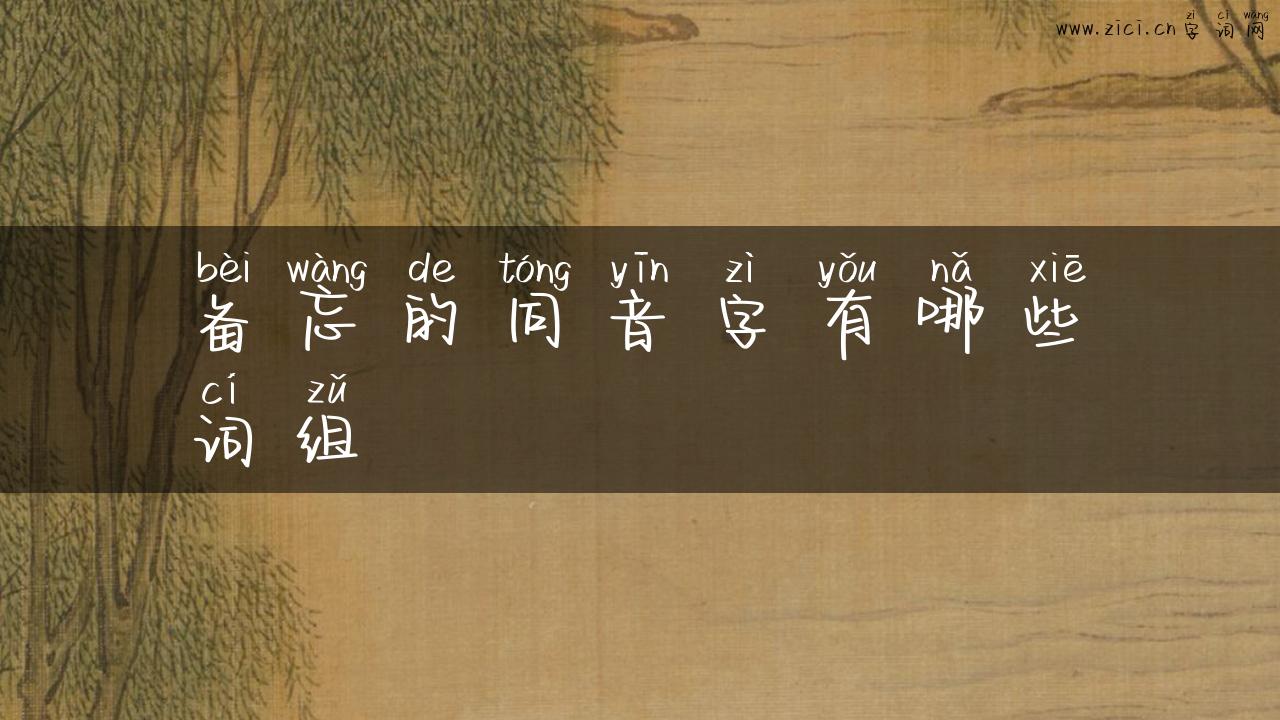 zì cí wǎng
www.zici.cn字词网
bèi wàng de tóng yīn zì yǒu nǎ xiē
备忘的同音字有哪些
cí zǔ
词组